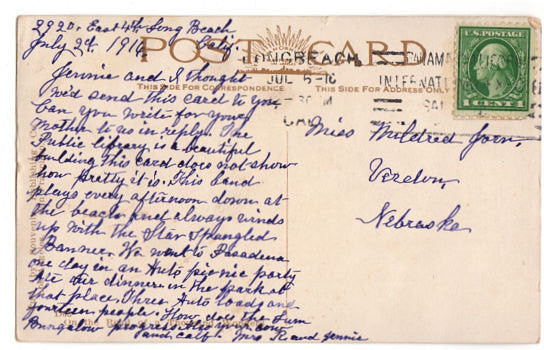 2920, East 4th Long Beach
July 2d. 1916 Calif.
POST CARD
THIS SIDE FOR CORRESPONDENCE
THIS SIDE FOR ADDRESS
LONGBEACH
JUL 5-16
-30 M
CAL
PANAMA
INTERNATI
SAN
1 CENT 1
Jennie and I thought
We'd send this card to you
Can you write for your
Mother to us in reply. The
Public library is a beautiful
building this card does not show
how pretty it is. This band
plays every afternoon down at
the beach and always winds
up with the Star Spangled
Banner. We went to Pasadena
one day on an Auto picnic party
Ate our dinner in the park at
that place. Three Auto loads and
fourteen people. How does the
Bungalow progress.
Mrs and Jennie
Miss Mildred Jorn,
Verdon,
Nebraska